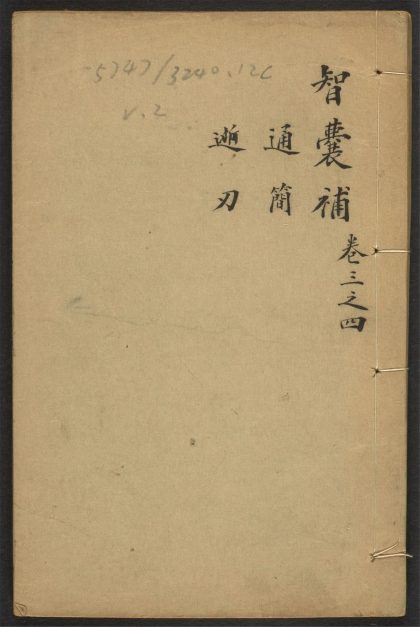 智囊補
卷三之四
通簡
迎刃
5747/3240.12C
v.2